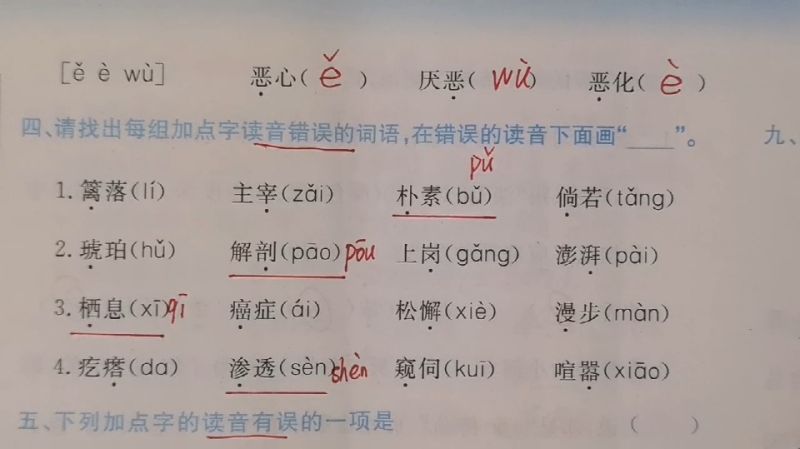 [ě è wù] 恶心( ě ) 厌恶( wù ) 恶化( è )
四、请找出每组加点字读音错误的词语,在错误的读音下面画“____”。 九、
pǔ
1.篱落(lí) 主宰(zǎi) 朴素(bǔ) 倘若(tǎng)
2.琥珀(hǔ) 解剖(pāo)pōu 上岗(gǎng) 澎湃(pài)
3.栖息(xī)qī 癌症(ái) 松懈(xiè) 漫步(màn)
4.疙瘩(da) 渗透(sèn)shèn 窥伺(kuī) 喧嚣(xiāo)
五、下列加点字的读音有误的一项是 ( )